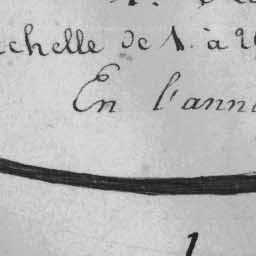 échelle de 1. à 2
En l'ann
1